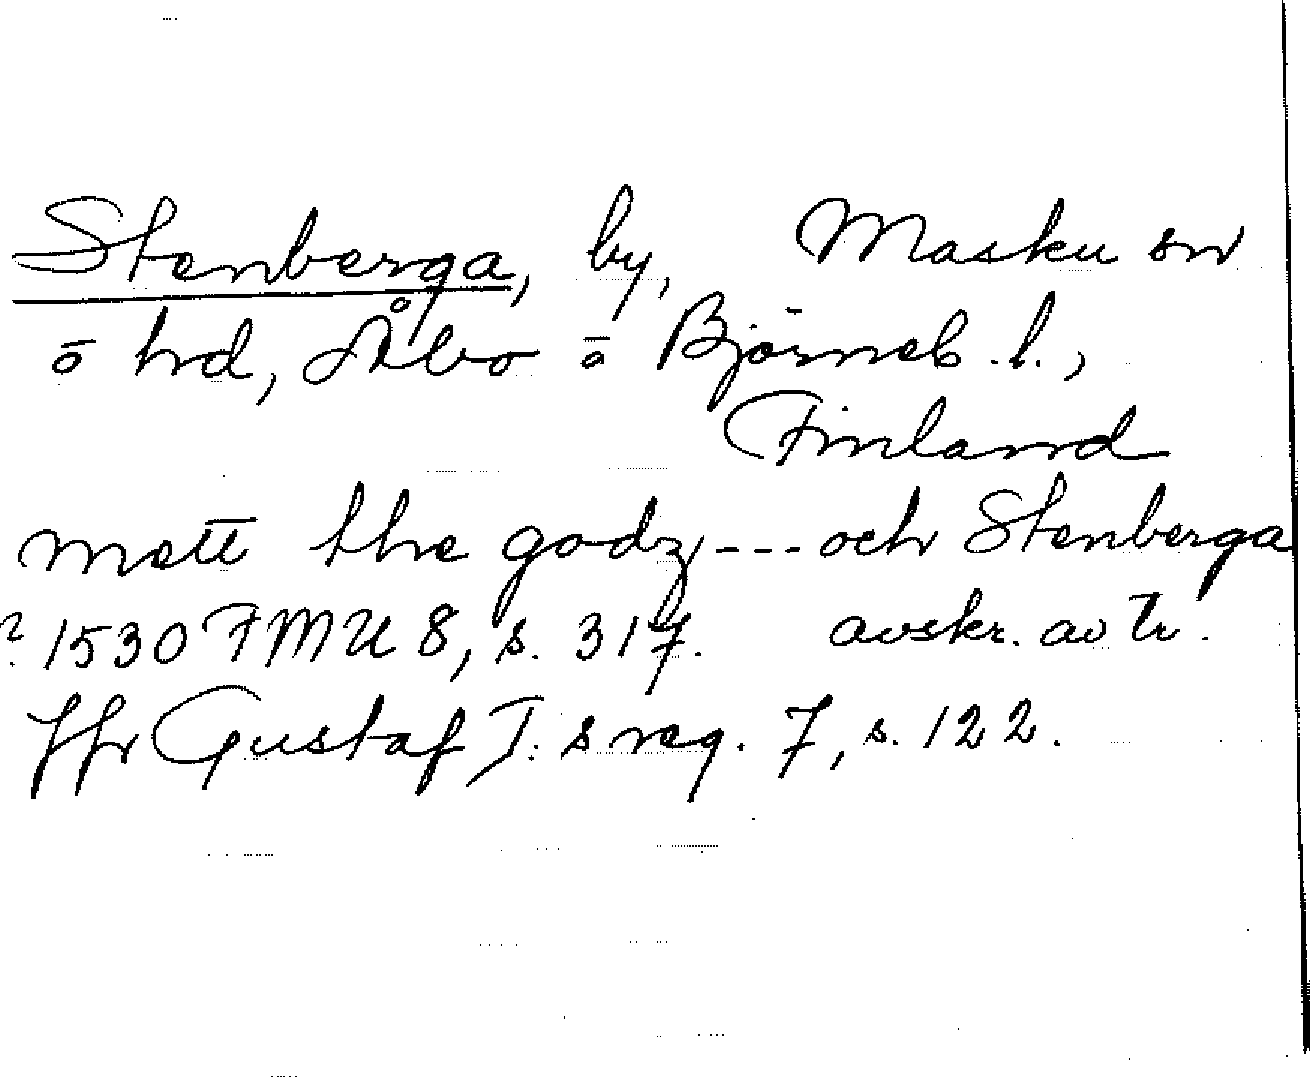 Stenberga, by, Masku sn
o hd, Åbo o Björneb. l.,
Finland
mett the godz --- och Stenberga
? 1530 FMU 8, s. 317. avskr. av tr.
Jfr Gustaf I:s reg. 7, s. 122.